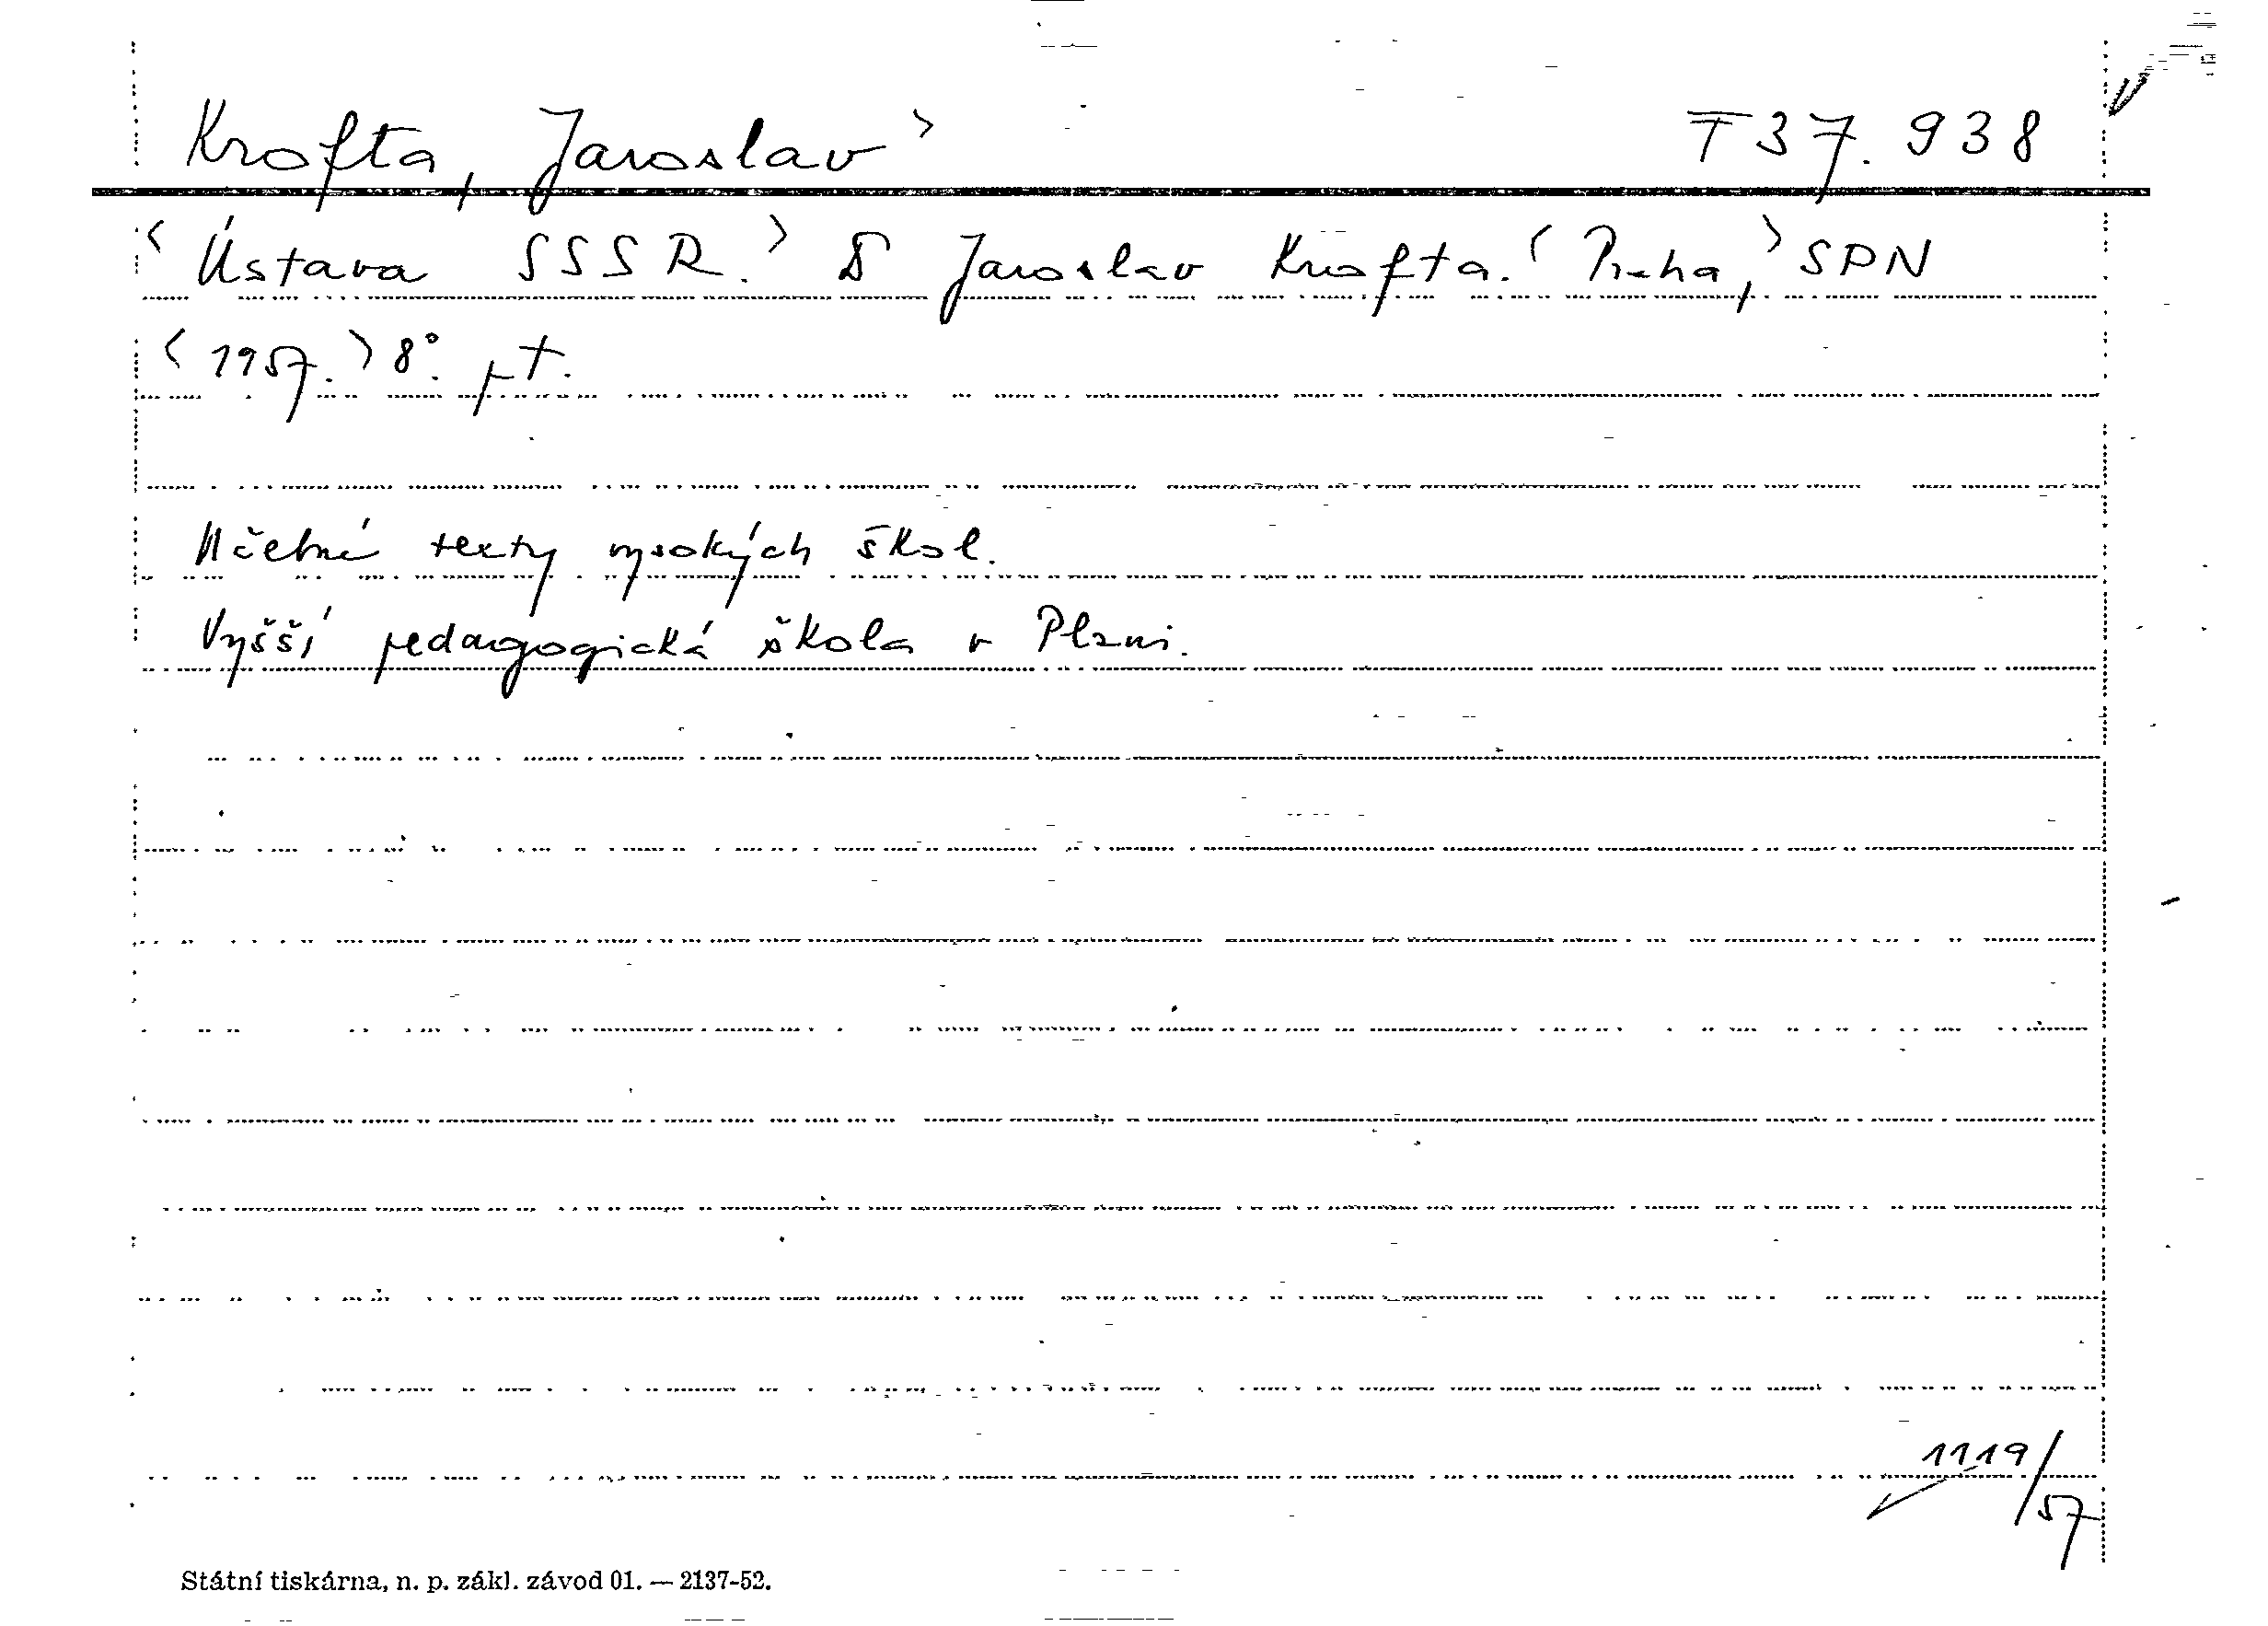 Krofta, Jaroslav> T 37.938
<Ústava SSSR.> Jaroslav Krofta. <Praha,> SPN
<1957.> 8°. pt.
Učebné texty vysokých škol.
Vyšší pedagogická škola v Plzni.
1119/57
Státní tiskárna, n. p. zákl. závod 01. — 2137-52.